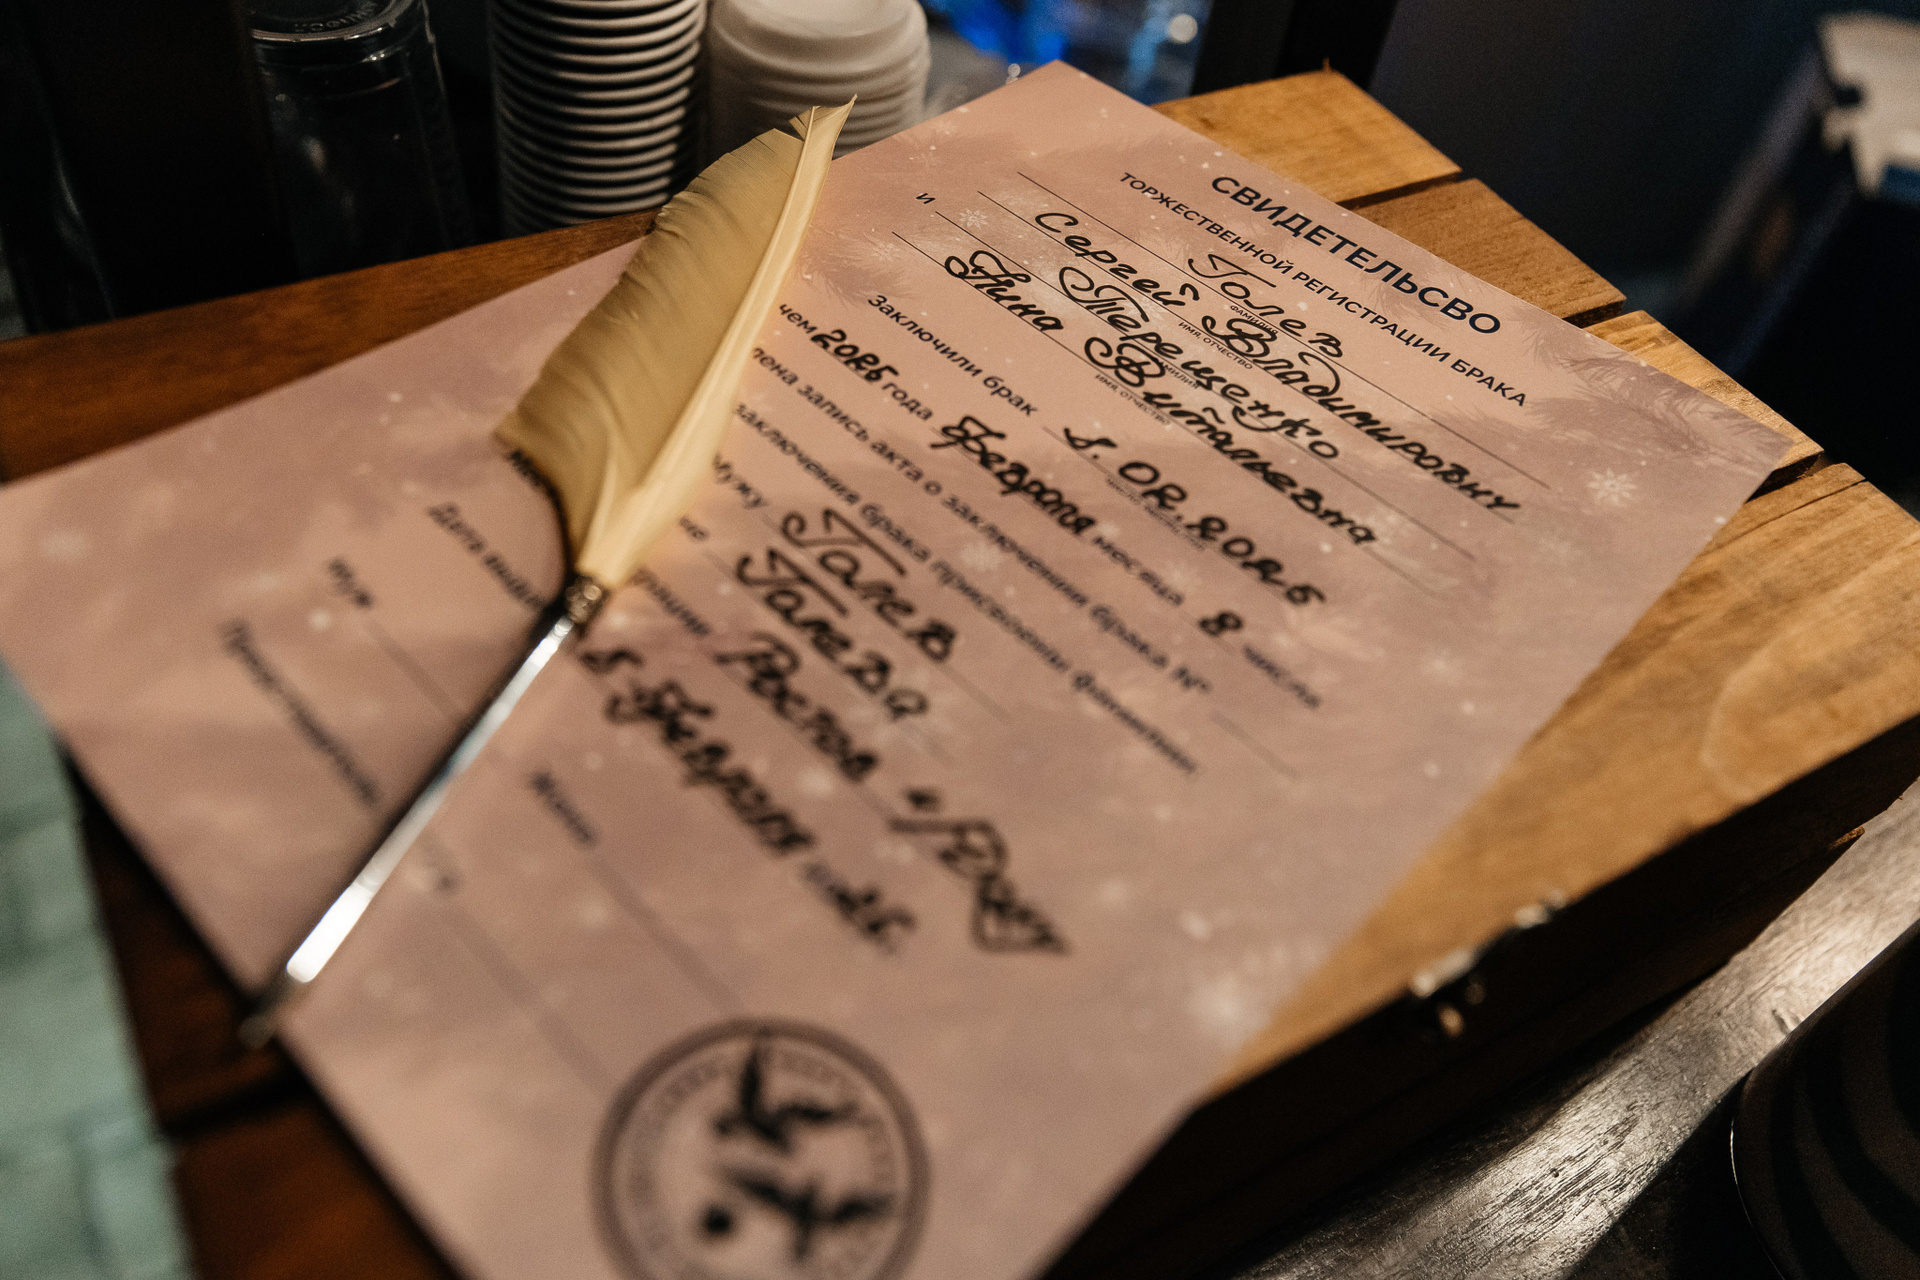 СВИДЕТЕЛЬСВО
ТОРЖЕСТВЕННОЙ РЕГИСТРАЦИИ БРАКА
Голев
ФАМИЛИЯ
Сергей Владимирович
ИМЯ, ОТЧЕСТВО
и Терещенко
ФАМИЛИЯ
Нина Витальевна
ИМЯ, ОТЧЕСТВО
Заключили брак 8. 02. 2025
чем 2025 года Февраля месяца 8 числа
запись акта о заключении брака №
заключения брака присвоены фамилии:
Мужу Голев
Голева
Ростов
Дата 8 Февраля
Муж
Жена